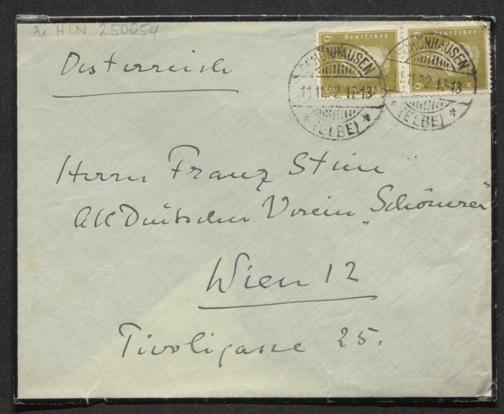 zu H.I.N. 250654
Österreich
6 Deutsches
SCHÖNHAUSEN
11.11.32.17-18
* (ELBE) *
SCHÖNHAUSEN
11.32.17-18
(ELBE) *
Herrn Franz Stein
Alldeutscher Verein „Schönerer"
Wien 12
Tivoligasse 25.